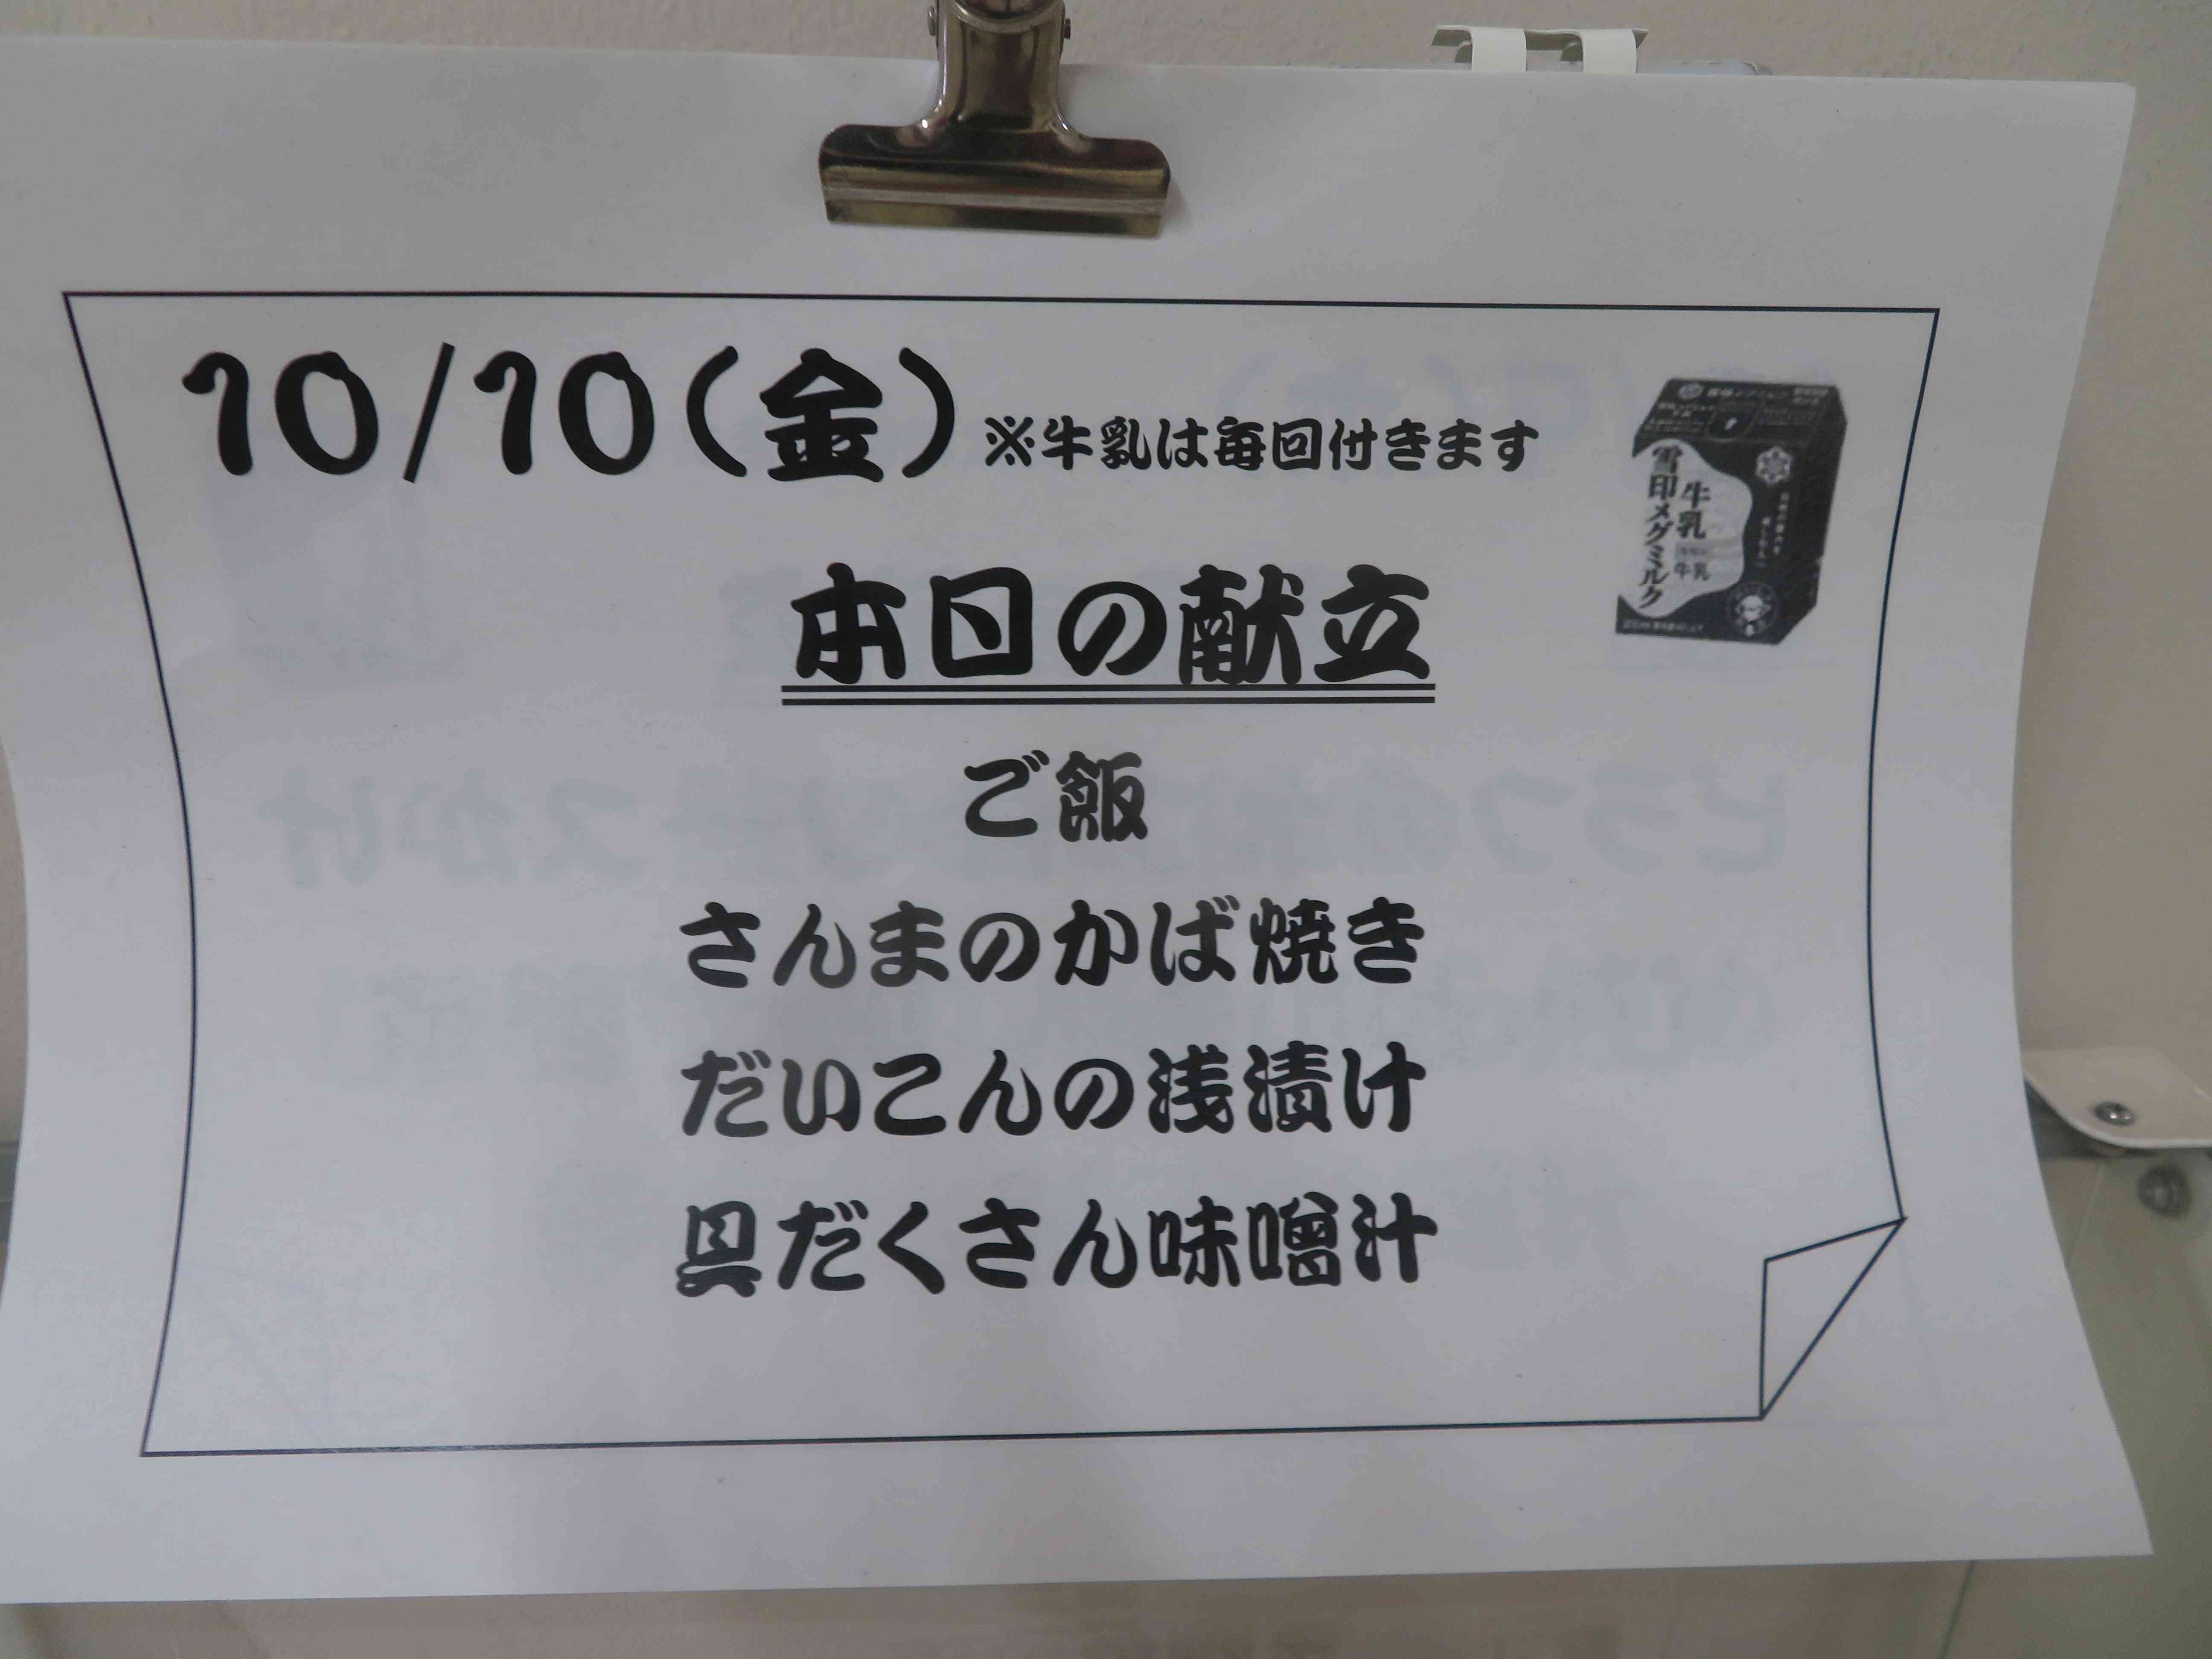 10/10(金)※牛乳は毎回付きます
雪印メグミルク
牛乳
牛乳
本日の献立
ご飯
さんまのかば焼き
だいこんの浅漬け
具だくさん味噌汁